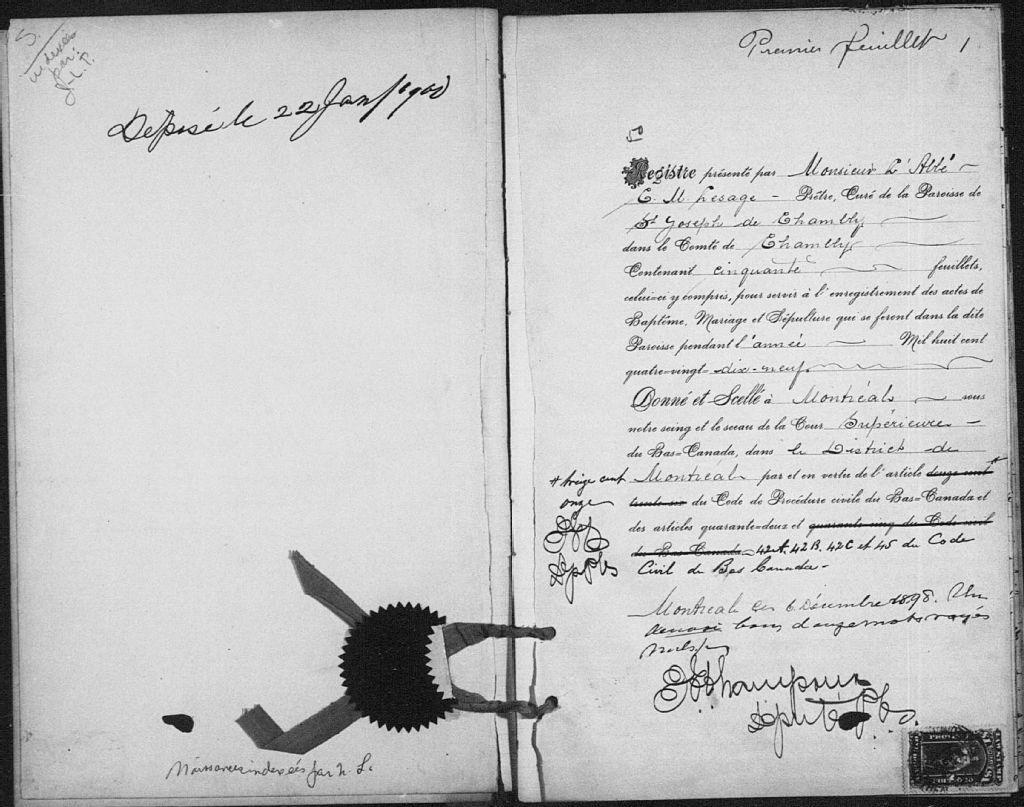 5.
indexées
par:
J. L. P.
Déposé le 22 Jan/1900
Naissances indexées par N. L.
Premier feuillet 1
50
Registre présenté par Monsieur L'Abbé
E. M. Lesage - Prêtre, Curé de la Paroisse de
St Joseph de Chambly
dans le Comté de Chambly
Contenant cinquante feuillets,
celui-ci y compris, pour servir à l'enregistrement des actes de
Baptême, Mariage et Sépulture qui se feront dans la dite
Paroisse pendant l'année Mil huit cent
quatre-vingt-dix-neuf.
Donné et Scellé à Montréal sous
notre seing et le sceau de la Cour Supérieure -
du Bas-Canada, dans le District de
Montréal par et en vertu de l'article douze cent *
trente-six du Code de Procédure civile du Bas-Canada et
des articles quarante-deux et quarante-cinq du Code civil
du Bas Canada 42A. 42B. 42C et 45 du Code
Civil du Bas Canada -
* treize cent
onze
Dép
Montreal ces 6 Décembre 1898. Un
renvoi bon, douze mots rayés
nuls
Député P.